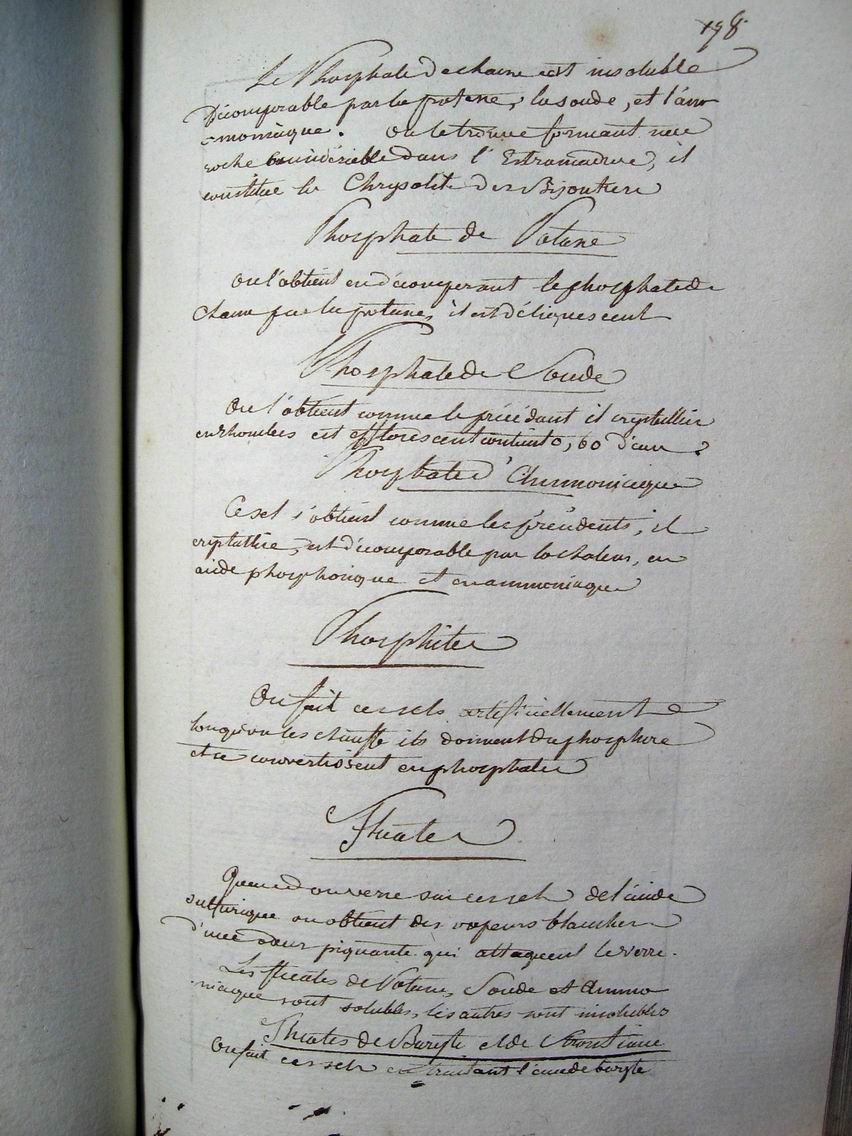 198
Le Phosphate de chaux est insoluble
Décomposable par la potasse, la soude, et l'am
-moniaque. On le trouve formant une
roche considérable dans l'Estramadure, il
constitue la Chrysolite des Bijoutiers
Phosphate de Potasse
On l'obtient en décomposant le phosphate de
chaux par la potasse, il est déliquescent
Phosphate de Soude
On l'obtient comme le précédant il crystallise
en rhombes est efflorescent contient 0,60 d'eau
Phosphate d'Ammoniaque
Ce sel s'obtient comme les précédents, il
crystallise, est décomposable par la chaleur, en
acide phosphorique et en ammoniaque
Phosphites
On fait ces sels artificiellement
lorsqu'on les chauffe ils donnent du phosphore
et se convertissent en phosphates
Fluates
Quand on verse sur ces sels de l'acide
sulfurique on obtient des vapeurs blanches
d'une odeur piquante qui attaquent le verre.
Les fluates de Potasse, Soude et Ammo
-niaque sont solubles, les autres sont insolubles
Fluates de Baryte et de Strontiane
On fait ces sels en traitant l'eau de baryte